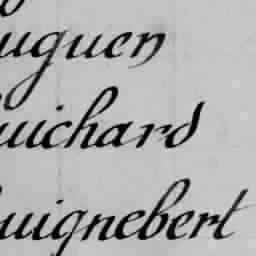 uguen
uichard
uignebert